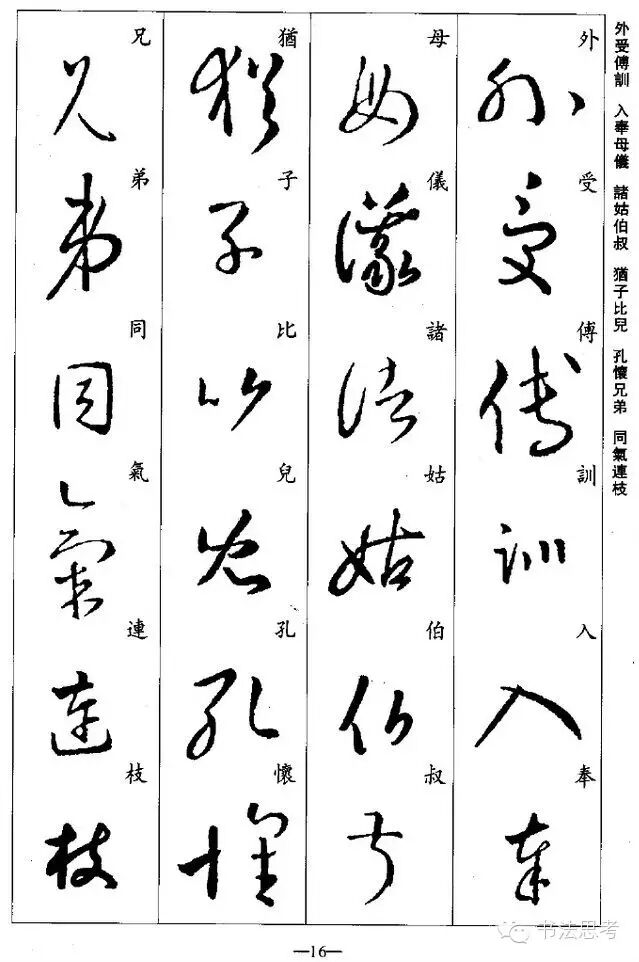 外受傅訓 入奉母儀 諸姑伯叔 猶子比兒 孔懷兄弟 同氣連枝
外受傅訓入奉
母儀諸姑伯叔
猶子比兒孔懷
兄弟同氣連枝
—16—
书法思考